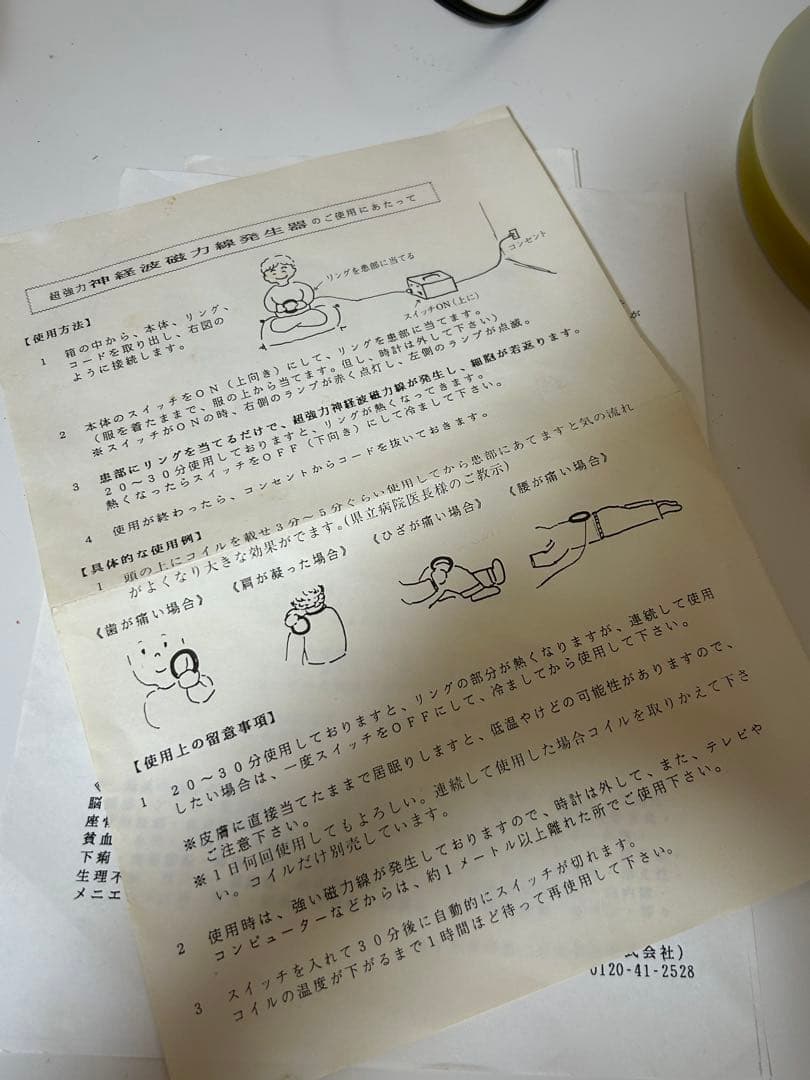 超強力 神経波磁力線発生器 のご使用にあたって
リングを患部に当てる
コンセント
スイッチON(上に)
【使用方法】
1 箱の中から、本体、リング、
コードを取り出し、右図の
ように接続します。
2 本体のスイッチをON(上向き)にして、リングを患部に当てます。
(服を着たままで、服の上から当てます。但し、時計は外して下さい)
※スイッチがONの時、右側のランプが赤く点灯し、左側のランプが点滅。
3 患部にリングを当てるだけで、超強力神経波磁力線が発生し、細胞が若返ります。
20〜30分使用しておりますと、リングが熱くなってきます。
熱くなったらスイッチをOFF(下向き)にして冷まして下さい。
4 使用が終わったら、コンセントからコードを抜いておきます。
【具体的な使用例】
1 頭の上にコイルを載せ3分〜5分ぐらい使用してから患部にあてますと気の流れ
がよくなり大きな効果がでます。(県立病院医長様のご教示)
《歯が痛い場合》
《肩が凝った場合》
《ひざが痛い場合》
《腰が痛い場合》
【使用上の留意事項】
1 20〜30分使用しておりますと、リングの部分が熱くなりますが、連続して使用
したい場合は、一度スイッチをOFFにして、冷ましてから使用して下さい。
※皮膚に直接当てたままで居眠りしますと、低温やけどの可能性がありますので、
ご注意下さい。
※1日何回使用してもよろしい。連続して使用した場合コイルを取りかえて下さ
い。コイルだけ別売しています。
2 使用時は、強い磁力線が発生しておりますので、時計は外して、また、テレビや
コンピューターなどからは、約1メートル以上離れた所でご使用下さい。
3 スイッチを入れて30分後に自動的にスイッチが切れます。
コイルの温度が下がるまで1時間ほど待って再使用して下さい。
脳
座骨
貧血
下痢
生理不
メニエ
式会社)
0120-41-2528